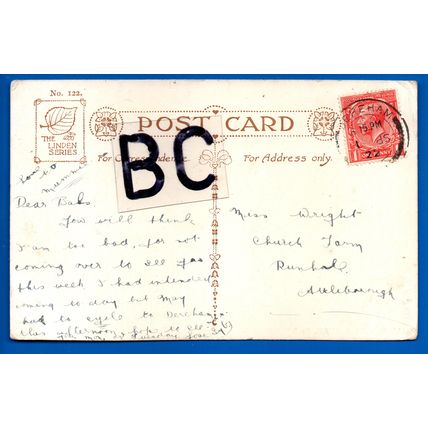 No. 122.
THE
LINDEN
SERIES
POST CARD
For Correspondence.
For Address only.
BC
EREHAM
15 PM
22
Love to
Mummie
Dear Babs.
You will think
I am too bad, for not
coming over to see you
this week I had intended
coming to day but May
had to cycle to Dereham
this afternoon, hope to see
you Mon. or Tuesday
Miss Wright
Church Farm
Runhall
Attleborough